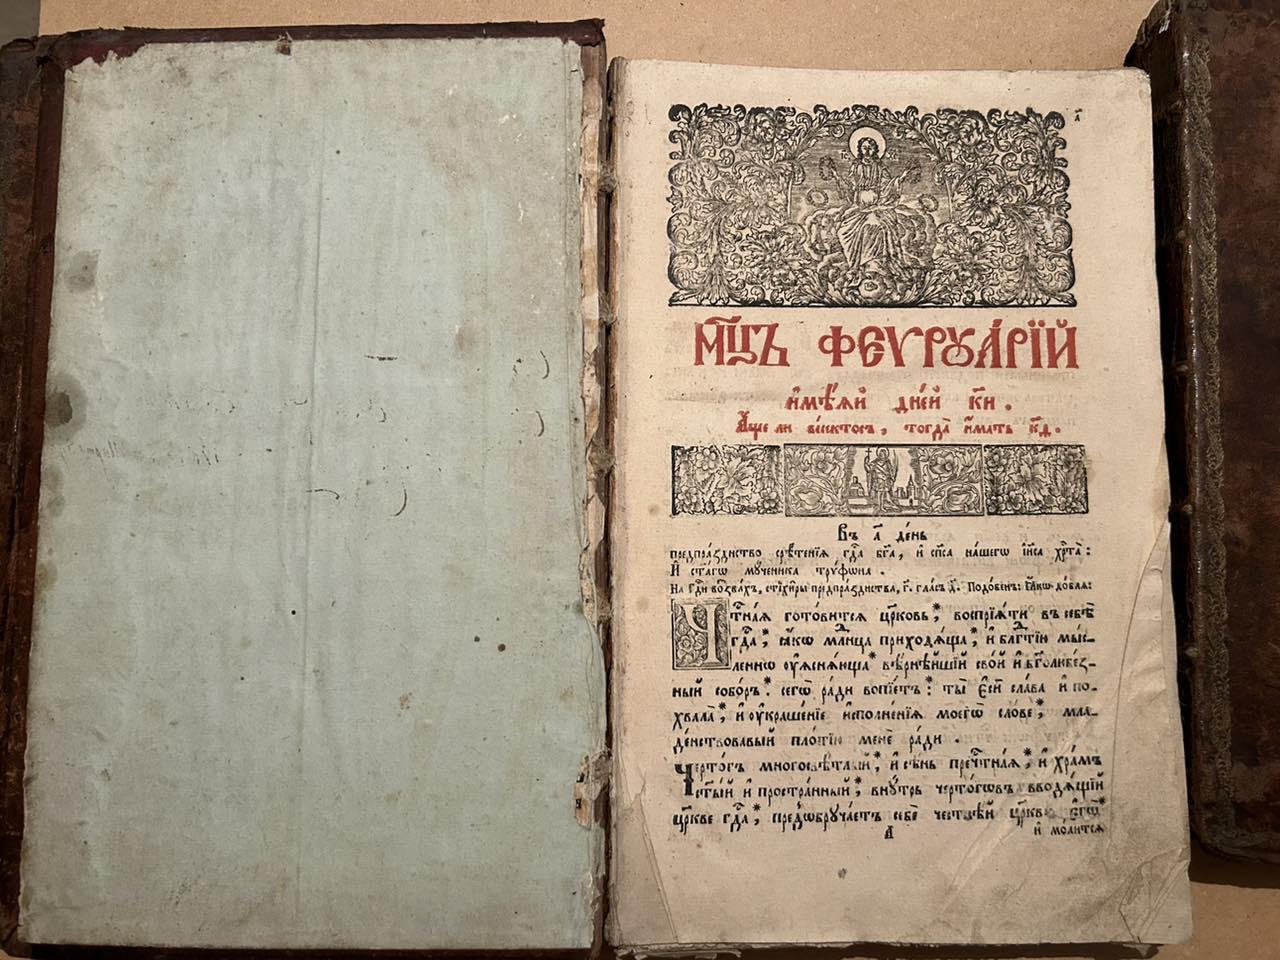 а҃
ІС ХС
Мц҃ъ Феѵрꙋа́рїй
и҆мѣ́ѧй дні́й к҃и.
А҆́ще ли ви́сектосъ, тогда̀ и҆́мать к҃ѳ.
Въ а҃ де́нь
предпра́зднство срѣ́тенїѧ гдⷭ҇а бг҃а, и҆ сп҃са на́шегѡ і҆и҃са хрⷭ҇та̀:
И҆ ст҃а́гѡ мꙋ́ченика трѵ́фѡна.
На гдⷭ҇и воззва́хъ, стїхи̑ры предпра́зднства, г҃. гла́съ д҃. Подо́бенъ: Ꙗ҆́кѡ до́блѧ:
Чтⷭ҇на́ѧ гото́витсѧ цр҃ковь; воспрїѧ́ти въ себѣ̀
гдⷭ҇а; ꙗ҆́кѡ млⷣнца приходѧ́ща; и҆ блгⷣтїю мы́с-
леннѡ ᲂу҆ѧснѧ́юща* вѣрнѣ́йшїй сво́й и҆ бг҃олюбе́з-
ный собо́ръ: сегѡ̀ ра́ди вопїе́тъ: ты̀ є҆сѝ сла́ва и҆ по-
хвала̀; и҆ ᲂу҆краше́нїе и҆сполне́нїѧ моегѡ̀ сло́ве; мла-
де́нствовавый пло́тїю менє̀ ра́ди.
Черто́гъ многосвѣ́тлый; и҆ сѣ́нь пречⷭ҇тнаѧ; и҆ хра́мъ
ст҃ы́й и҆ простра́нный; внꙋ́трь черто́гѡвъ вводѧ́щїй
цр҃кве гдⷭ҇а; предѡбрꙋча́етъ себѐ честнѣ́й цр҃кви є҆гѡ̀*
А
и҆ мо́литсѧ